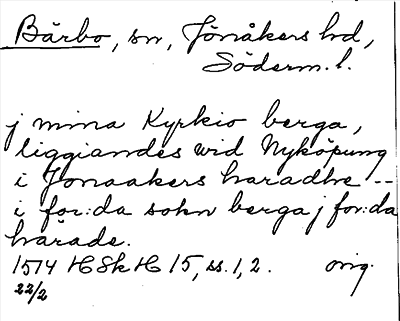 Bärbo, sn, Jönåkers hd,
Söderm. l.
j mina Kyrkio berga,
liggiandes wid Nyköpung
i Jonaakers haradhe --
i for:da sokn berga j for:da
härade.
1514 HSkH 15, ss. 1, 2. orig.
22/2